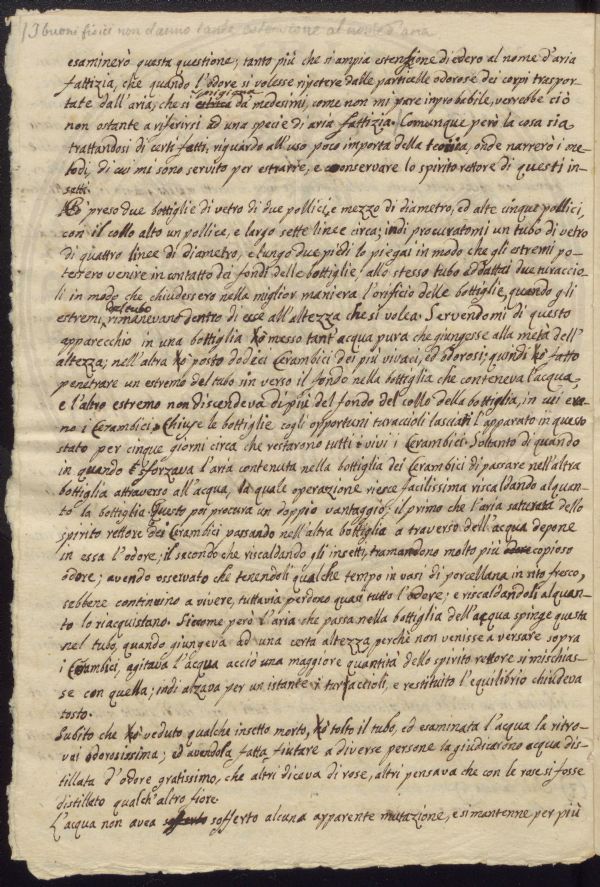 I buoni fisici non danno tanta estensione al nome d'aria
esaminerò questa questione; tanto più che si ampia estensione di edero al nome d'aria
fattizia, che quando l'odore si volesse ripetere dalle particelle odorose dei corpi traspor-
tate dall'aria, che si origina da medesimi, come non mi pare improbabile, verrebbe ciò
non ostante a riferirsi ad una specie di aria fattizia. Comunque però la cosa sia
trattandosi di certi fatti, riguardo all'uso poco importa della teoria, onde narrerò i me-
todi, di cui mi sono servito per estrarre, e conservare lo spirito rettore di questi in-
setti.
Hò preso due bottiglie di vetro di due pollici, e mezzo di diametro, ed alte cinque pollici,
con il collo alto un pollice, e largo sette linee circa; indi procuratomi un tubo di vetro
di quattro linee di diametro, e lungo due piedi lo piegai in modo che gli estremi po-
tessero venire in contatto dei fondi delle bottiglie; allo stesso tubo addattai due turaccio-
li in modo che chiudessero nella miglior maniera l'orificio delle bottiglie, quando gli
estremi del tubo rimanevano dentro di esse all'altezza che si volea. Servendomi di questo
apparecchio in una bottiglia hò messo tant'acqua pura che giungesse alla metà dell'
altezza; nell'altra hò posto dodeci Cerambici dei più vivaci, ed odorosi; quindi hò fatto
penetrare un estremo del tubo sin verso il fondo nella bottiglia che conteneva l'acqua,
e l'altro estremo non discendeva di più del fondo del collo della bottiglia, in cui era-
no i Cerambici. Chiuse le bottiglie cogli opportuni turaccioli lasciai l'apparato in questo
stato per cinque giorni circa che restarono tutti vivi i Cerambici. Soltanto di quando
in quando sforzava l'aria contenuta nella bottiglia dei Cerambici di passare nell'altra
bottiglia attraverso all'acqua, la quale operazione riesce facilissima riscaldando alquan-
to la bottiglia. Questo poi procura un doppio vantaggio; il primo che l'aria saturata dello
spirito rettore dei Cerambici passando nell'altra bottiglia a traverso dell'acqua depone
in essa l'odore; il secondo che riscaldando gli insetti, tramandono molto più copioso
odore; avendo osservato che tenendoli qualche tempo in vasi di porcellana in sito fresco,
sebbene continuino a vivere, tuttavia perdono quasi tutto l'odore; e riscaldandoli alquan-
to lo riacquistano. Siccome però l'aria che passa nella bottiglia dell'acqua spinge questa
nel tubo, quando giungeva ad una certa altezza perchè non venisse a versare sopra
i Cerambici, agitava l'acqua acciò una maggiore quantità dello spirito rettore si mischias-
se con quella; indi alzava per un istante i turaccioli, e restituito l'equilibrio chiudeva
tosto.
Subito che hò veduto qualche insetto morto, hò tolto il tubo, ed esaminata l'acqua la ritro-
vai odorosissima; ed avendola fatta fiutare a diverse persone la giudicarono acqua dis-
tillata d'odore gratissimo, che altri diceva di rose, altri pensava che con le rose si fosse
distillato qualch'altro fiore.
L'acqua non avea sofferto alcuna apparente mutazione, e si mantenne per più